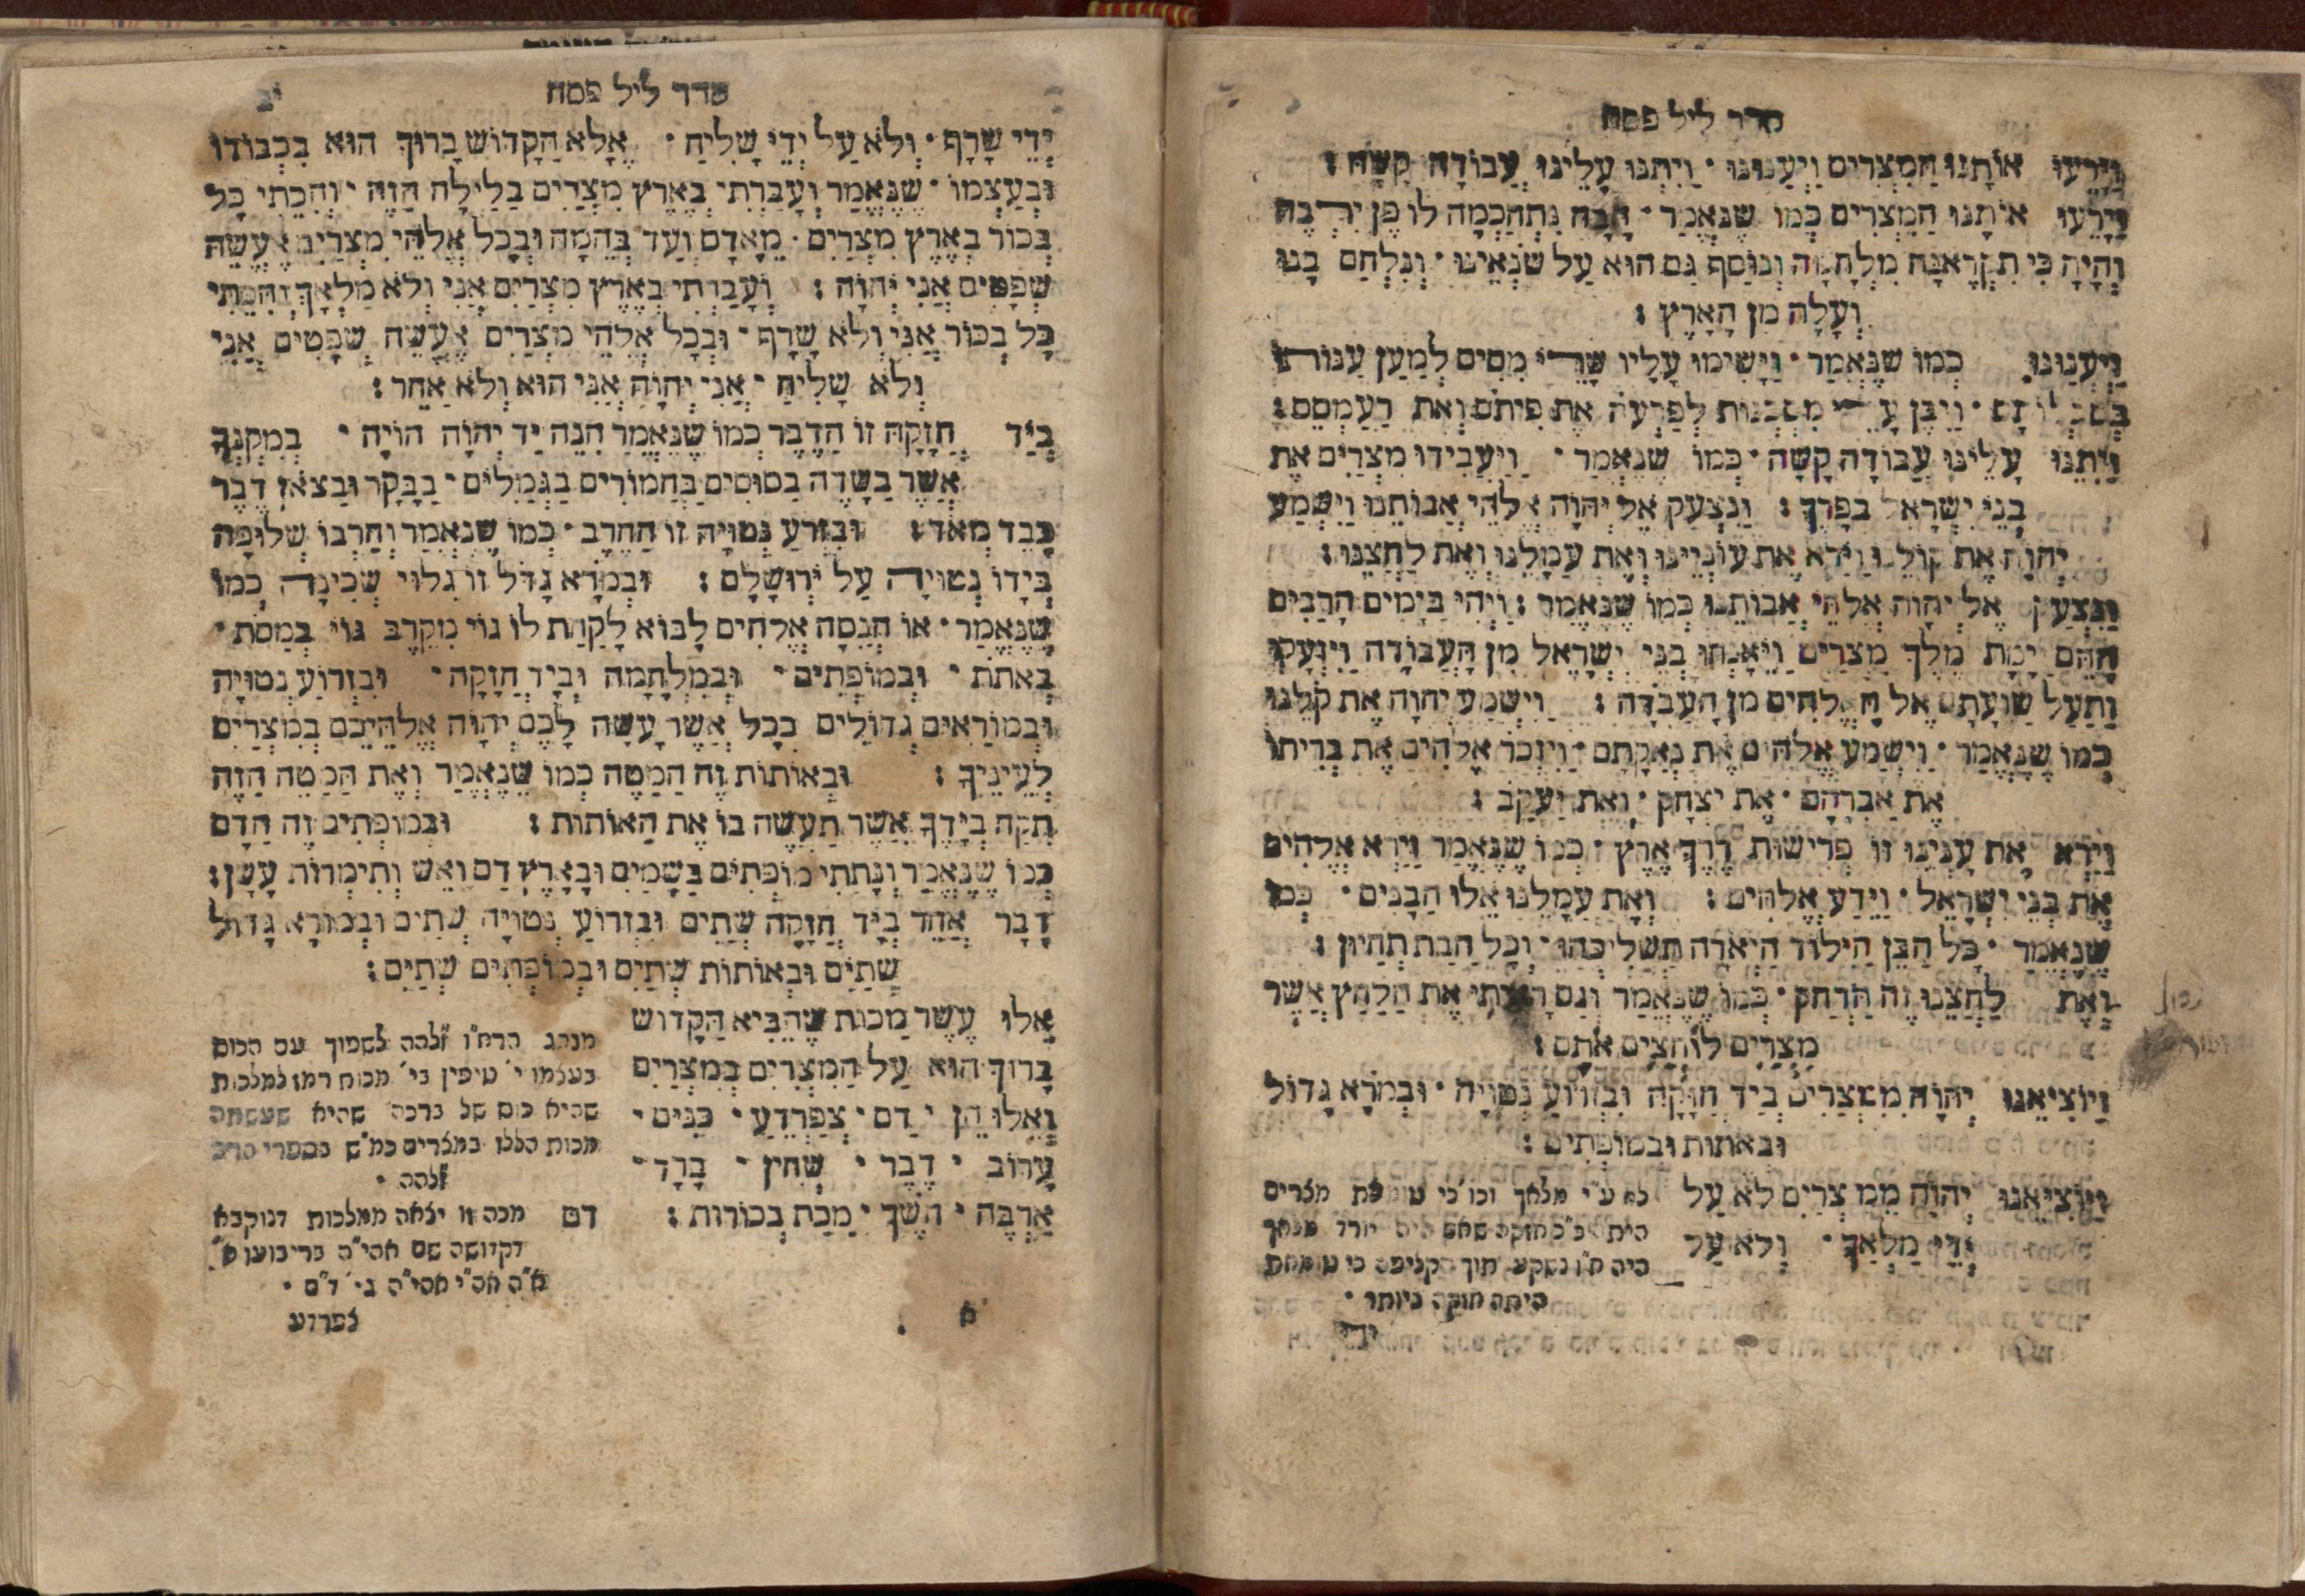 סדר ליל פסח
וַיָּרֵעוּ אוֹתָנוּ הַמִּצְרִים וַיְעַנּוּנוּ · וַיִּתְּנוּ עָלֵינוּ עֲבוֹדָה קָשָׁה :
וַיָּרֵעוּ אוֹתָנוּ הַמִּצְרִים כְּמוֹ שֶׁנֶּאֱמַר · הָבָה נִתְחַכְּמָה לוֹ פֶּן יִרְבֶּה
וְהָיָה כִּי תִקְרֶאנָה מִלְחָמָה וְנוֹסַף גַּם הוּא עַל שֹׂנְאֵינוּ · וְנִלְחַם בָּנוּ
וְעָלָה מִן הָאָרֶץ :
וַיְעַנּוּנוּ כְּמוֹ שֶׁנֶּאֱמַר · וַיָּשִׂימוּ עָלָיו שָׂרֵי מִסִּים לְמַעַן עַנּוֹתוֹ
בְּסִבְלוֹתָם · וַיִּבֶן עָרֵי מִסְכְּנוֹת לְפַרְעֹה אֶת פִּיתֹם וְאֶת רַעַמְסֵס :
וַיִּתְּנוּ עָלֵינוּ עֲבוֹדָה קָשָׁה · כְּמוֹ שֶׁנֶּאֱמַר · וַיַּעֲבִידוּ מִצְרַיִם אֶת
בְּנֵי יִשְׂרָאֵל בְּפָרֶךְ : וַנִּצְעַק אֶל יְהוָה אֱלֹהֵי אֲבוֹתֵנוּ וַיִּשְׁמַע
יְהוָה אֶת קוֹלֵנוּ וַיַּרְא אֶת עוֹנְיֵינוּ וְאֶת עֲמָלֵנוּ וְאֶת לַחֲצֵנוּ :
וַנִּצְעַק אֶל יְהוָה אֱלֹהֵי אֲבוֹתֵנוּ כְּמוֹ שֶׁנֶּאֱמַר : וַיְהִי בַיָּמִים הָרַבִּים
הָהֵם יָמָת מֶלֶךְ מִצְרַיִם וַיֵּאָנְחוּ בְנֵי יִשְׂרָאֵל מִן הָעֲבוֹדָה וַיִּזְעָקוּ
וַתַּעַל שַׁוְעָתָם אֶל הָאֱלֹהִים מִן הָעֲבֹדָה : וַיִּשְׁמַע יְהוָה אֶת קֹלֵנוּ
כְּמוֹ שֶׁנֶּאֱמַר · וַיִּשְׁמַע אֱלֹהִים אֶת נַאֲקָתָם · וַיִּזְכֹּר אֱלֹהִים אֶת בְּרִיתוֹ
אֶת אַבְרָהָם · אֶת יִצְחָק · וְאֶת יַעֲקֹב :
וַיַּרְא אֶת עָנְיֵנוּ זוֹ פְּרִישׁוּת דֶּרֶךְ אֶרֶץ · כְּמוֹ שֶׁנֶּאֱמַר וַיַּרְא אֱלֹהִים
אֶת בְּנֵי יִשְׂרָאֵל · וַיֵּדַע אֱלֹהִים : וְאֶת עֲמָלֵנוּ אֵלּוּ הַבָּנִים · כְּמוֹ
שֶׁנֶּאֱמַר · כָּל הַבֵּן הַיִּלּוֹד הַיְאֹרָה תַּשְׁלִיכֻהוּ · וְכָל הַבַּת תְּחַיּוּן :
וְאֶת לַחֲצֵנוּ זֶה הַדְּחַק · כְּמוֹ שֶׁנֶּאֱמַר וְגַם רָאִיתִי אֶת הַלַּחַץ אֲשֶׁר
מִצְרַיִם לוֹחֲצִים אֹתָם :
וַיּוֹצִיאֵנוּ יְהוָה מִמִּצְרַיִם בְּיָד חֲזָקָה וּבִזְרוֹעַ נְטוּיָה · וּבְמֹרָא גָדוֹל
וּבְאֹתוֹת וּבְמוֹפְתִים :
וַיּוֹצִיאֵנוּ יְהוָה מִמִּצְרַיִם לֹא עַל
יְדֵי מַלְאָךְ · וְלֹא עַל
לא ע״י מלאך וכו׳ כי מצרים
היה נשקע תוך
היתה חזקה ביותר ·
ידי
סדר ליל פסח יב
יְדֵי שָׂרָף · וְלֹא עַל יְדֵי שָׁלִיחַ · אֶלָּא הַקָּדוֹשׁ בָּרוּךְ הוּא בִּכְבוֹדוֹ
וּבְעַצְמוֹ · שֶׁנֶּאֱמַר וְעָבַרְתִּי בְּאֶרֶץ מִצְרַיִם בַּלַּיְלָה הַזֶּה · וְהִכֵּתִי כָל
בְּכוֹר בְּאֶרֶץ מִצְרַיִם · מֵאָדָם וְעַד בְּהֵמָה וּבְכָל אֱלֹהֵי מִצְרַיִם אֶעֱשֶׂה
שְׁפָטִים אֲנִי יְהוָה : וְעָבַרְתִּי בְאֶרֶץ מִצְרַיִם אֲנִי וְלֹא מַלְאָךְ וְהִכֵּתִי
כָּל בְּכוֹר אֲנִי וְלֹא שָׂרָף · וּבְכָל אֱלֹהֵי מִצְרַיִם אֶעֱשֶׂה שְׁפָטִים אֲנִי
וְלֹא שָׁלִיחַ · אֲנִי יְהוָה אֲנִי הוּא וְלֹא אַחֵר :
בְּיָד חֲזָקָה זוֹ הַדֶּבֶר כְּמוֹ שֶׁנֶּאֱמַר הִנֵּה יַד יְהוָה הוֹיָה · בְּמִקְנְךָ
אֲשֶׁר בַּשָּׂדֶה בַּסּוּסִים בַּחֲמוֹרִים בַּגְּמַלִּים · בַּבָּקָר וּבַצֹּאן דֶּבֶר
כָּבֵד מְאֹד : וּבִזְרֹעַ נְטוּיָה זוֹ הַחֶרֶב · כְּמוֹ שֶׁנֶּאֱמַר וְחַרְבּוֹ שְׁלוּפָה
בְּיָדוֹ נְטוּיָה עַל יְרוּשָׁלָם : וּבְמֹרָא גָּדֹל זוֹ גִּלּוּי שְׁכִינָה כְּמוֹ
שֶׁנֶּאֱמַר · אוֹ הֲנִסָּה אֱלֹהִים לָבוֹא לָקַחַת לוֹ גוֹי מִקֶּרֶב גּוֹי בְּמַסֹּת ·
בְּאֹתֹת · וּבְמוֹפְתִים · וּבְמִלְחָמָה וּבְיָד חֲזָקָה · וּבִזְרוֹעַ נְטוּיָה
וּבְמוֹרָאִים גְּדוֹלִים כְּכָל אֲשֶׁר עָשָׂה לָכֶם יְהוָה אֱלֹהֵיכֶם בְּמִצְרַיִם
לְעֵינֶיךָ : וּבְאוֹתוֹת זֶה הַמַּטֶּה כְּמוֹ שֶׁנֶּאֱמַר וְאֶת הַמַּטֶּה הַזֶּה
תִּקַּח בְּיָדֶךָ אֲשֶׁר תַּעֲשֶׂה בּוֹ אֶת הָאוֹתוֹת : וּבְמוֹפְתִים זֶה הַדָּם
כְּמוֹ שֶׁנֶּאֱמַר וְנָתַתִּי מוֹפְתִים בַּשָּׁמַיִם וּבָאָרֶץ דָּם וָאֵשׁ וְתִימְרוֹת עָשָׁן :
דָּבָר אַחֵר בְּיָד חֲזָקָה שְׁתַּיִם וּבִזְרוֹעַ נְטוּיָה שְׁתַּיִם וּבְמוֹרָא גָּדוֹל
שְׁתַּיִם וּבְאוֹתוֹת שְׁתַּיִם וּבְמוֹפְתִים שְׁתַּיִם :
אֵלּוּ עֶשֶׂר מַכּוֹת שֶׁהֵבִיא הַקָּדוֹשׁ
בָּרוּךְ הוּא עַל הַמִּצְרִיִּם בְּמִצְרַיִם
וְאֵלּוּ הֵן · דָּם · צְפַרְדֵּעַ · כִּנִּים ·
עָרוֹב · דֶּבֶר · שְׁחִין · בָּרָד ·
אַרְבֶּה · חֹשֶׁךְ · מַכַּת בְּכוֹרוֹת :
מנהג הרח״ו זלהה לשפוך עם הכוס
בעצמו י׳ טיפין בי׳ מכות רמז למלכות
שהיא כוס של ברכה שהיא שעשתה
מכות הללו במצרים כמ״ש בספרי הרב
זלהה ·
דם מכה זו יצאה ממלכות דנוקבא
דקדושה שם אהי״ה בריבועו א׳
א״ה אה״י אהי״ה גי׳ ד״ם ·
צפרדע